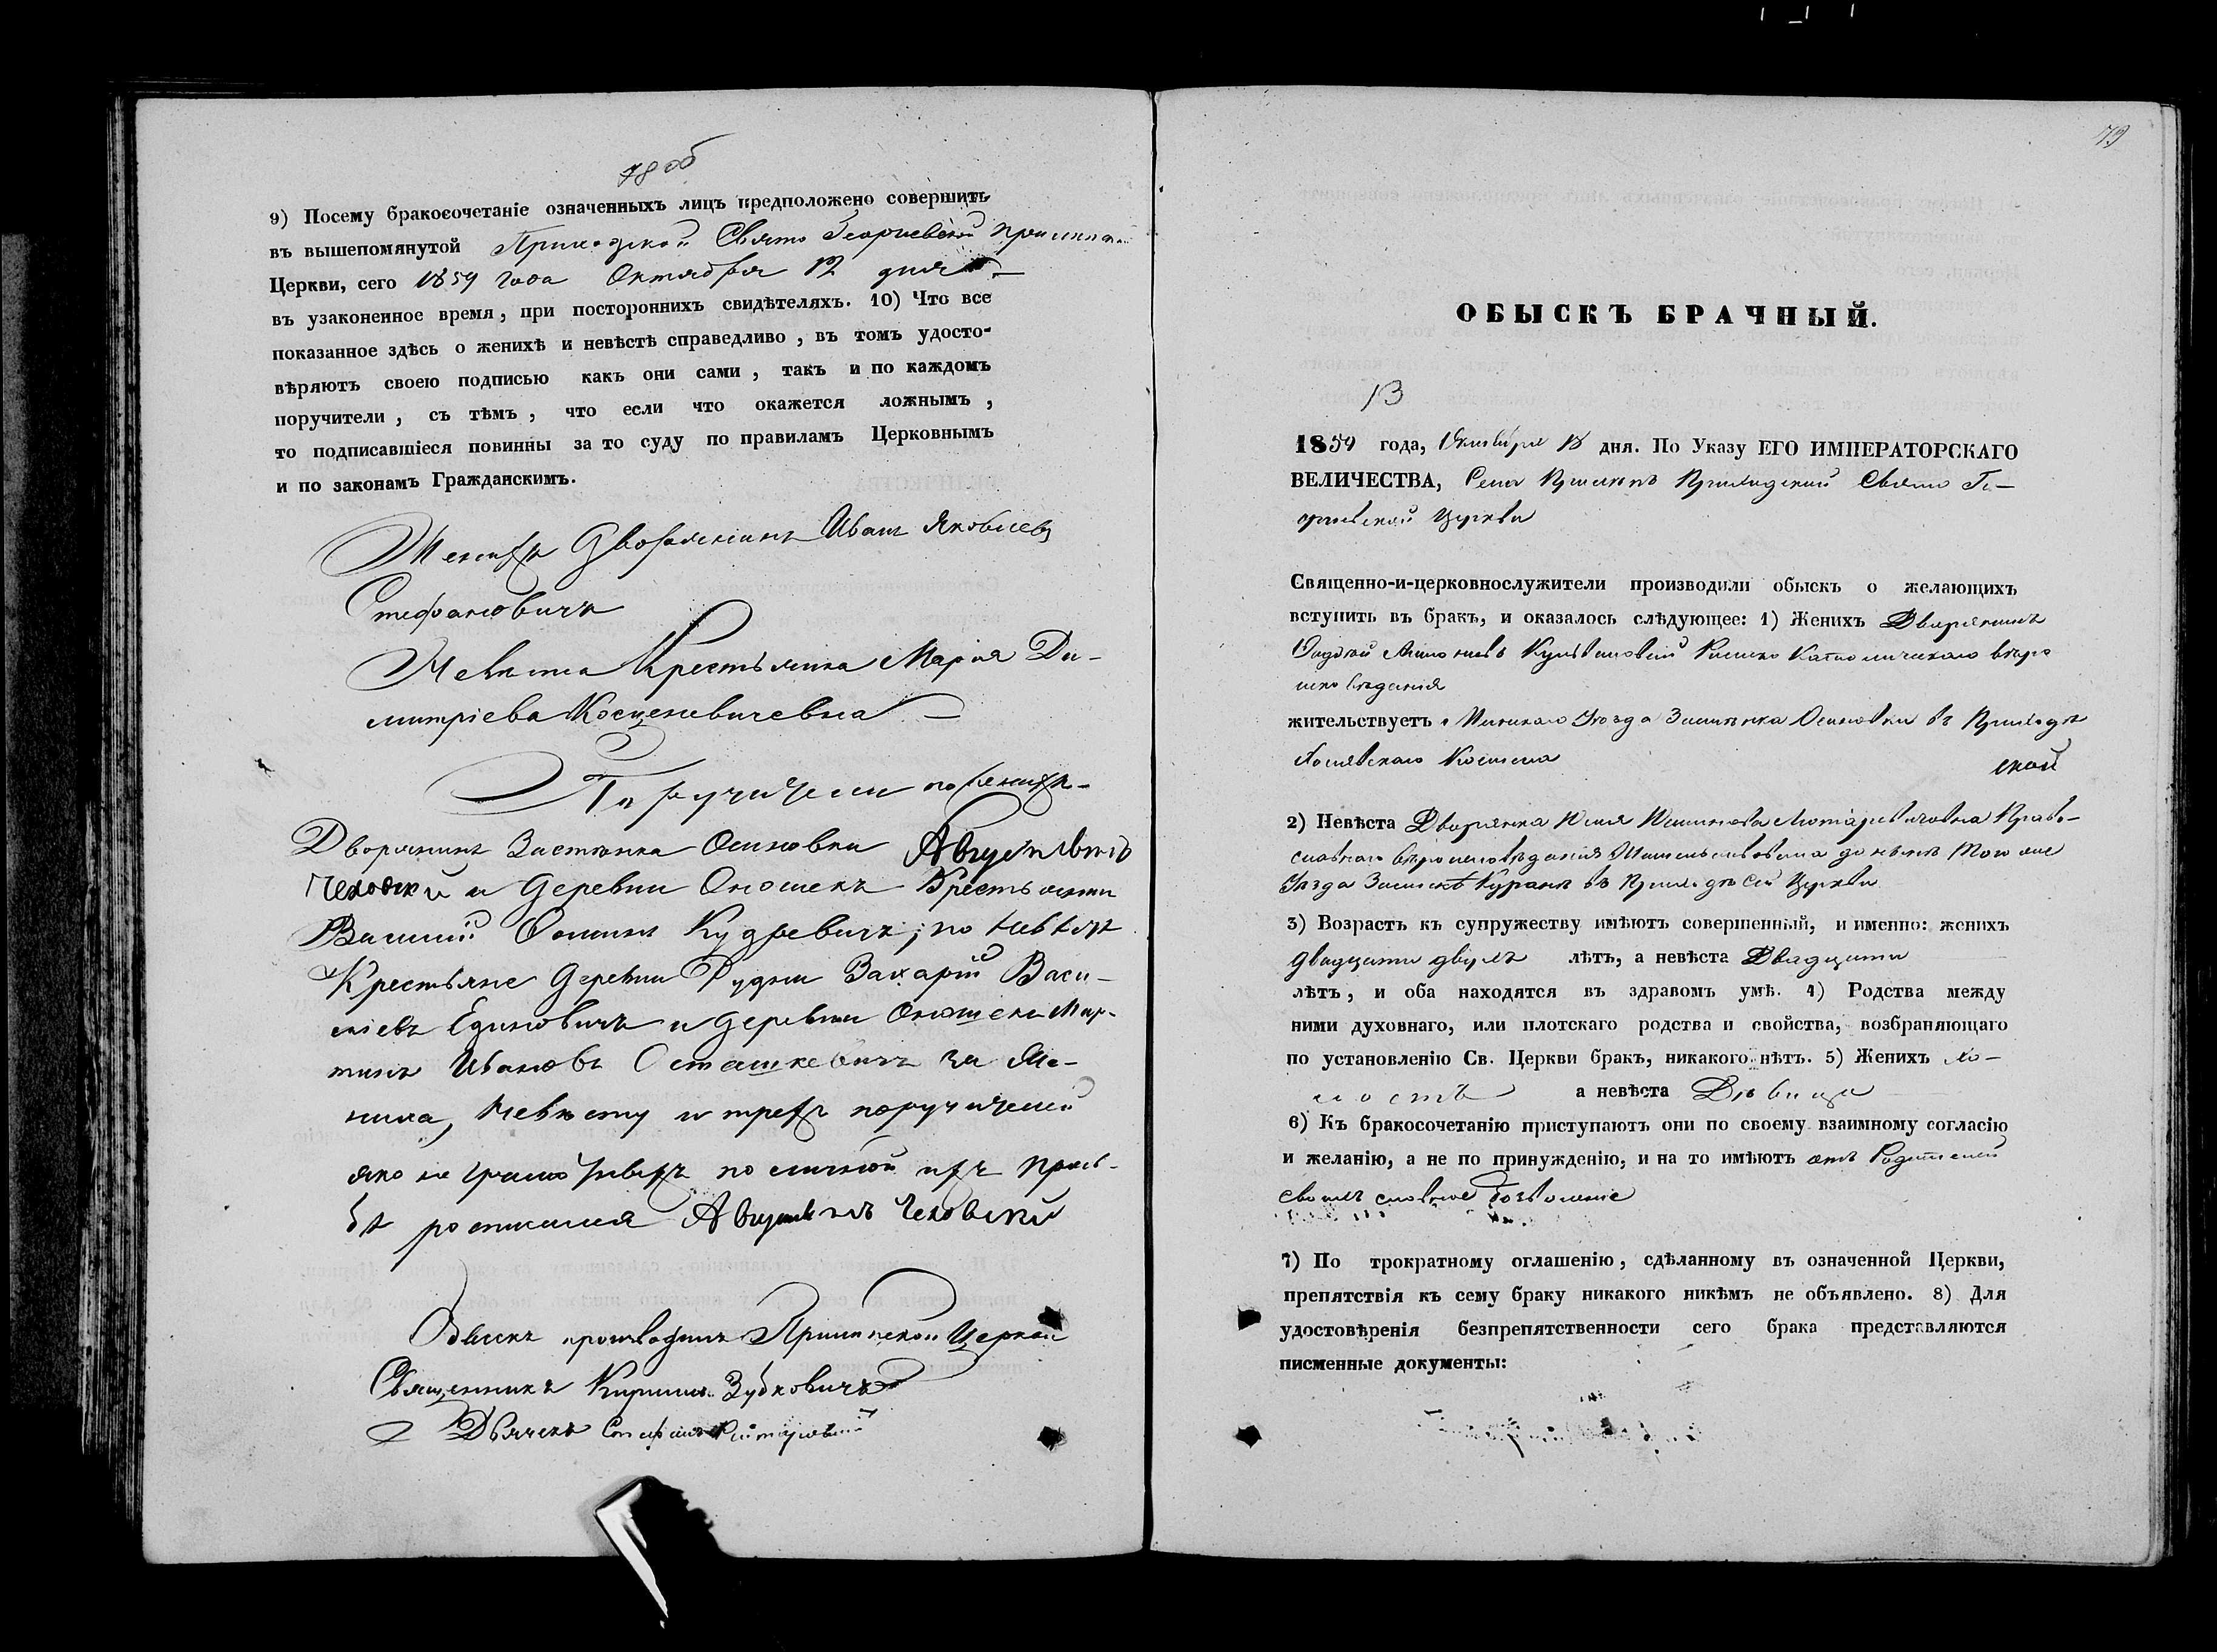 78 об
9) Посему бракосочетаніе означенныхъ лицъ предположено совершить
въ вышепомянутой Приходской Свято Георгіевской
Церкви, сего 1859 года Октября 12 дня
въ узаконенное время, при постороннихъ свидѣтеляхъ. 10) Что все
показанное здѣсь о женихѣ и невѣстѣ справедливо, въ томъ удосто-
вѣряютъ своею подписью какъ они сами, такъ и по каждомъ
поручители, съ тѣмъ, что если что окажется ложнымъ,
то подписавшіеся повинны за то суду по правиламъ Церковнымъ
и по законамъ Гражданскимъ.
Женихъ Дворянинъ Иванъ Яковлевъ
Стефановичъ
Невѣста Крестьянка Марія Ди-
митріева Косценевичевна
Поручители по женихѣ
Дворянинъ Застѣнка Осиновки Августинъ
Чеховскій и Деревни Оношекъ Крестьянинъ
Василій Кудревичъ; по невѣстѣ
Крестьяне Деревни Рудни Захарій Васи-
ліевъ Единовичъ и Деревни Оношекъ Мар-
тинъ Ивановъ Осташкевичъ За Же-
ниха, Невѣсту и трехъ поручителей
яко не грамотныхъ по личной ихъ прось-
бѣ росписался Августинъ Чеховскій
Обыскъ производилъ Церкви
Священникъ Кириллъ Зубковичъ
Дьячекъ Стефанъ
79
ОБЫСКЪ БРАЧНЫЙ.
13
1859 года, Октября 18 дня. По Указу ЕГО ИМПЕРАТОРСКАГО
ВЕЛИЧЕСТВА, Села Приходской Свято Ге-
оргіевской Церкви
Священно-и-церковнослужители производили обыскъ о желающихъ
вступить въ бракъ, и оказалось слѣдующее: 1) Женихъ Дворянинъ
Римско Католическаго вѣро
исповѣданія
жительствуетъ Уѣзда Застѣнка Осиновки въ Приходѣ
Костела
ской
2) Невѣста Дворянка Право-
славнаго вѣроисповѣданія жительствовала до нынѣ того же
Уѣзда въ Приходѣ сей Церкви
3) Возрастъ къ супружеству имѣютъ совершенный, и именно: женихъ
двадцати двухъ лѣтъ, а невѣста Двадцати
лѣтъ, и оба находятся въ здравомъ умѣ. 4) Родства между
ними духовнаго, или плотскаго родства и свойства, возбраняющаго
по установленію Св. Церкви бракъ, никакого нѣтъ. 5) Женихъ хо-
лостъ а невѣста Дѣвица
6) Къ бракосочетанію приступаютъ они по своему взаимному согласію
и желанію, а не по принужденію, и на то имѣютъ отъ Родителей
своихъ словное дозволеніе
7) По трократному оглашенію, сдѣланному въ означенной Церкви,
препятствія къ сему браку никакого никѣмъ не объявлено. 8) Для
удостовѣренія безпрепятственности сего брака представляются
писменные документы: